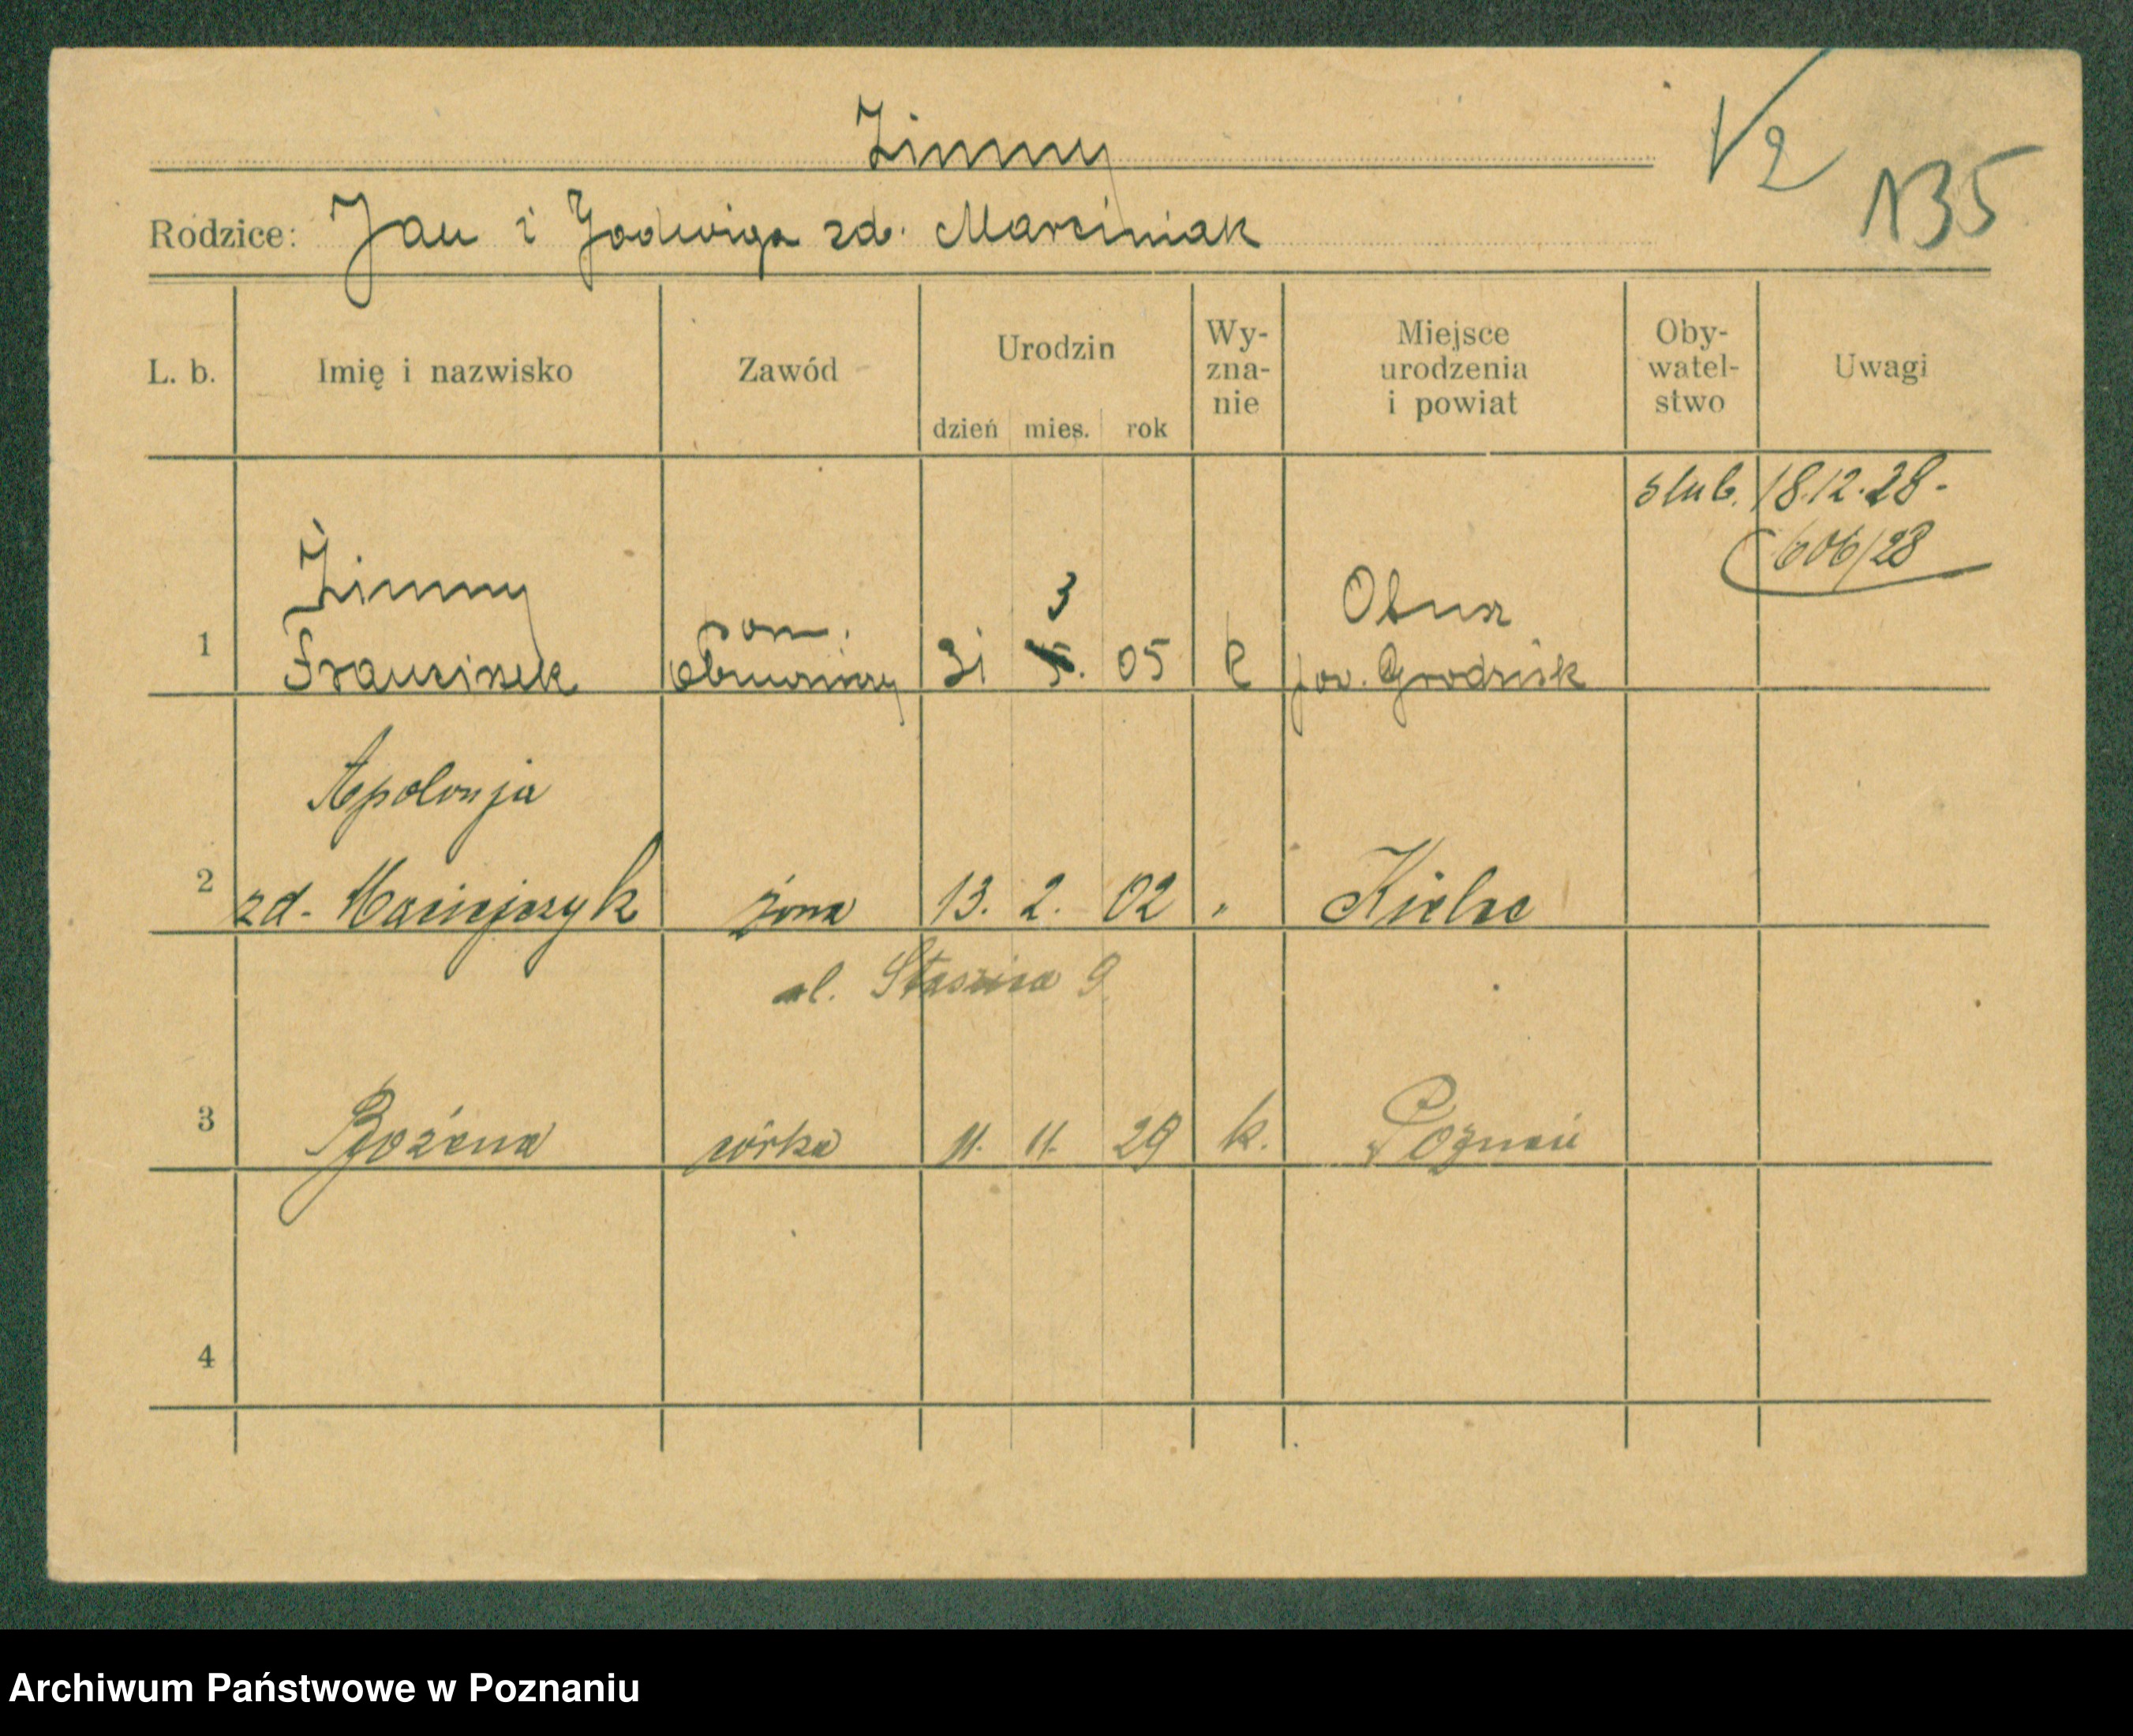 Zimny
V2
135
Rodzice: Jan i Jadwiga zd. Marciniak
L. b. Imię i nazwisko Zawód Urodzin dzień mies. rok Wy-zna-nie Miejsce urodzenia i powiat Oby-watel-stwo Uwagi
slub. 18.12.28-
606/28
Zimny
3
1 Franciszek 31 05 k pow. Grodzisk
Apolonja
2 zd. Maciejczyk żona 13. 2. 02 " Kielce
ul. Staszica 9
3 Bożena córka 11. 11. 29 k. Poznań
4
Archiwum Państwowe w Poznaniu